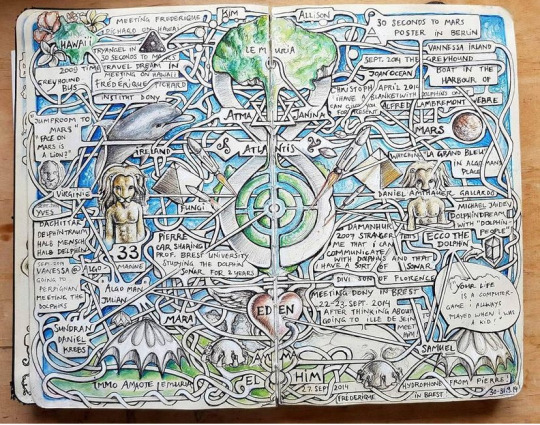 MEETING FREDERIQUE
PICHARD ON HAWAII
HAWAII
TRYANGEL IN
30 SECONDS TO MARS
2009 TIME TRAVEL DREAM IN
MEETING ON HAWAII
GREYHOUND
BUS
FRÉDÉRIQUE PICHARD
INSTITUT DONY
"JUMPROOM TO
MARS"
"FACE ON
MARS IS
A LION?"
IRELAND
VIRGINIE
YVES
FUNGI
DACHITTAR
DELPHINTRAUM
HALB MENSCH
HALB DELPHIN
VANESSA @
GOING TO
PERPIGNAN
MEETING THE
DOLPHINS
33
ALGO
MARINE
ALGO MAN
JULIAN
PIERRE
CAR SHARING
PROF. BREST UNIVERSITY
STUDYING THE DOLPHIN
SONAR FOR 2 YEARS
SUNDRAN
DANIEL
KREBS
MARA
KIM
ALLISON
LE MURIA
ATMA
JANINA
ATLANTIS
EDEN
EL
HIM
27. SEPT 2014
FRÉDÉRIQUE
30 SECONDS TO MARS
POSTER IN BERLIN
SEPT. 2014 THE
JOAN OCEAN
VANNESSA IRLAND
GREYHOUND
BOAT IN THE
HARBOUR OF
CHRISTOPH
APRIL 2014
I HAVE A BLANKET I
CAN GIVE YOU
FOR PRESENT
ALFRED
DOLPHINS ON
LAMBREMONT
MARS
WATCHING "LA GRAND BLEU"
IN ALGO MANS
PLACE
DANIEL AMTHAUER GALLARDO
DAMANHUR
2007 STRANGER
ME THAT I CAN
COMMUNICATE
WITH DOLPHINS AND THAT
I HAVE A SORT OF SONAR
ECCO THE
DOLPHIN
MICHAEL JAIDEV
DOLPHINDREAM
WITH "DOLPHIN-
PEOPLE"
DIVI SON OF FLORENCE
MEETING DONY IN BREST
23. SEPT. 2014
AFTER THINKING ABOUT
GOING TO ILLE DE SEIN
MEET
HIM
"YOUR LIFE
IS A COMPUTER-
GAME I ALWAYS
PLAYED WHEN I WAS
A KID"
SAMUEL
HYDROPHONE FROM PIERRE!
IN BREST